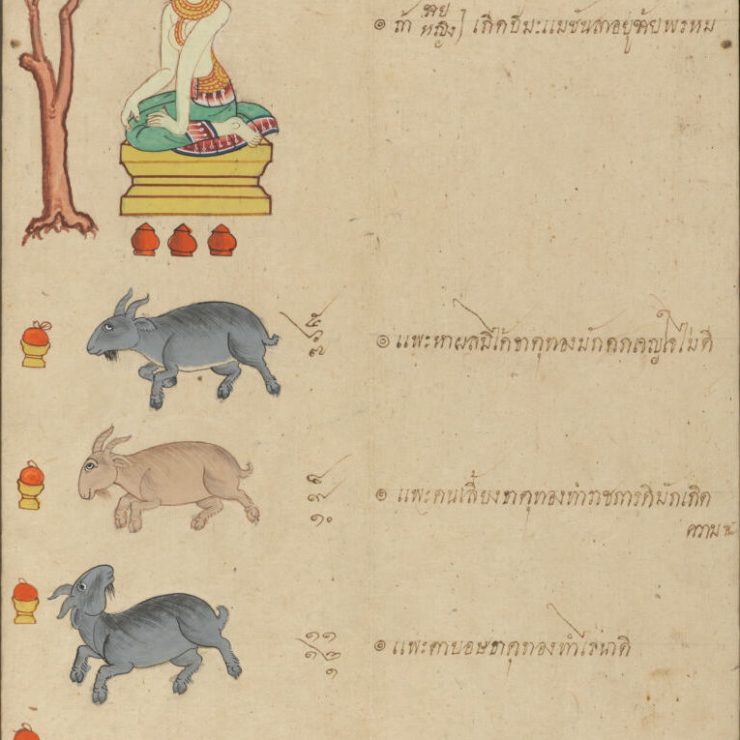 ๏ ถ้า ชาย หญิง เกิดปีมะแม
๕
๖
๗
๏ แพะหาผลมิได้ธาตุทองมัก ใจไม่ดี
๘
๙
๑๐
๏ แพะคนเลี้ยงธาตุทองทำราชการดีมักเกิด
ความ
๑๑
๑๒
๑
๏ แพะตาบอษธาตุทองทำไร่นาดี